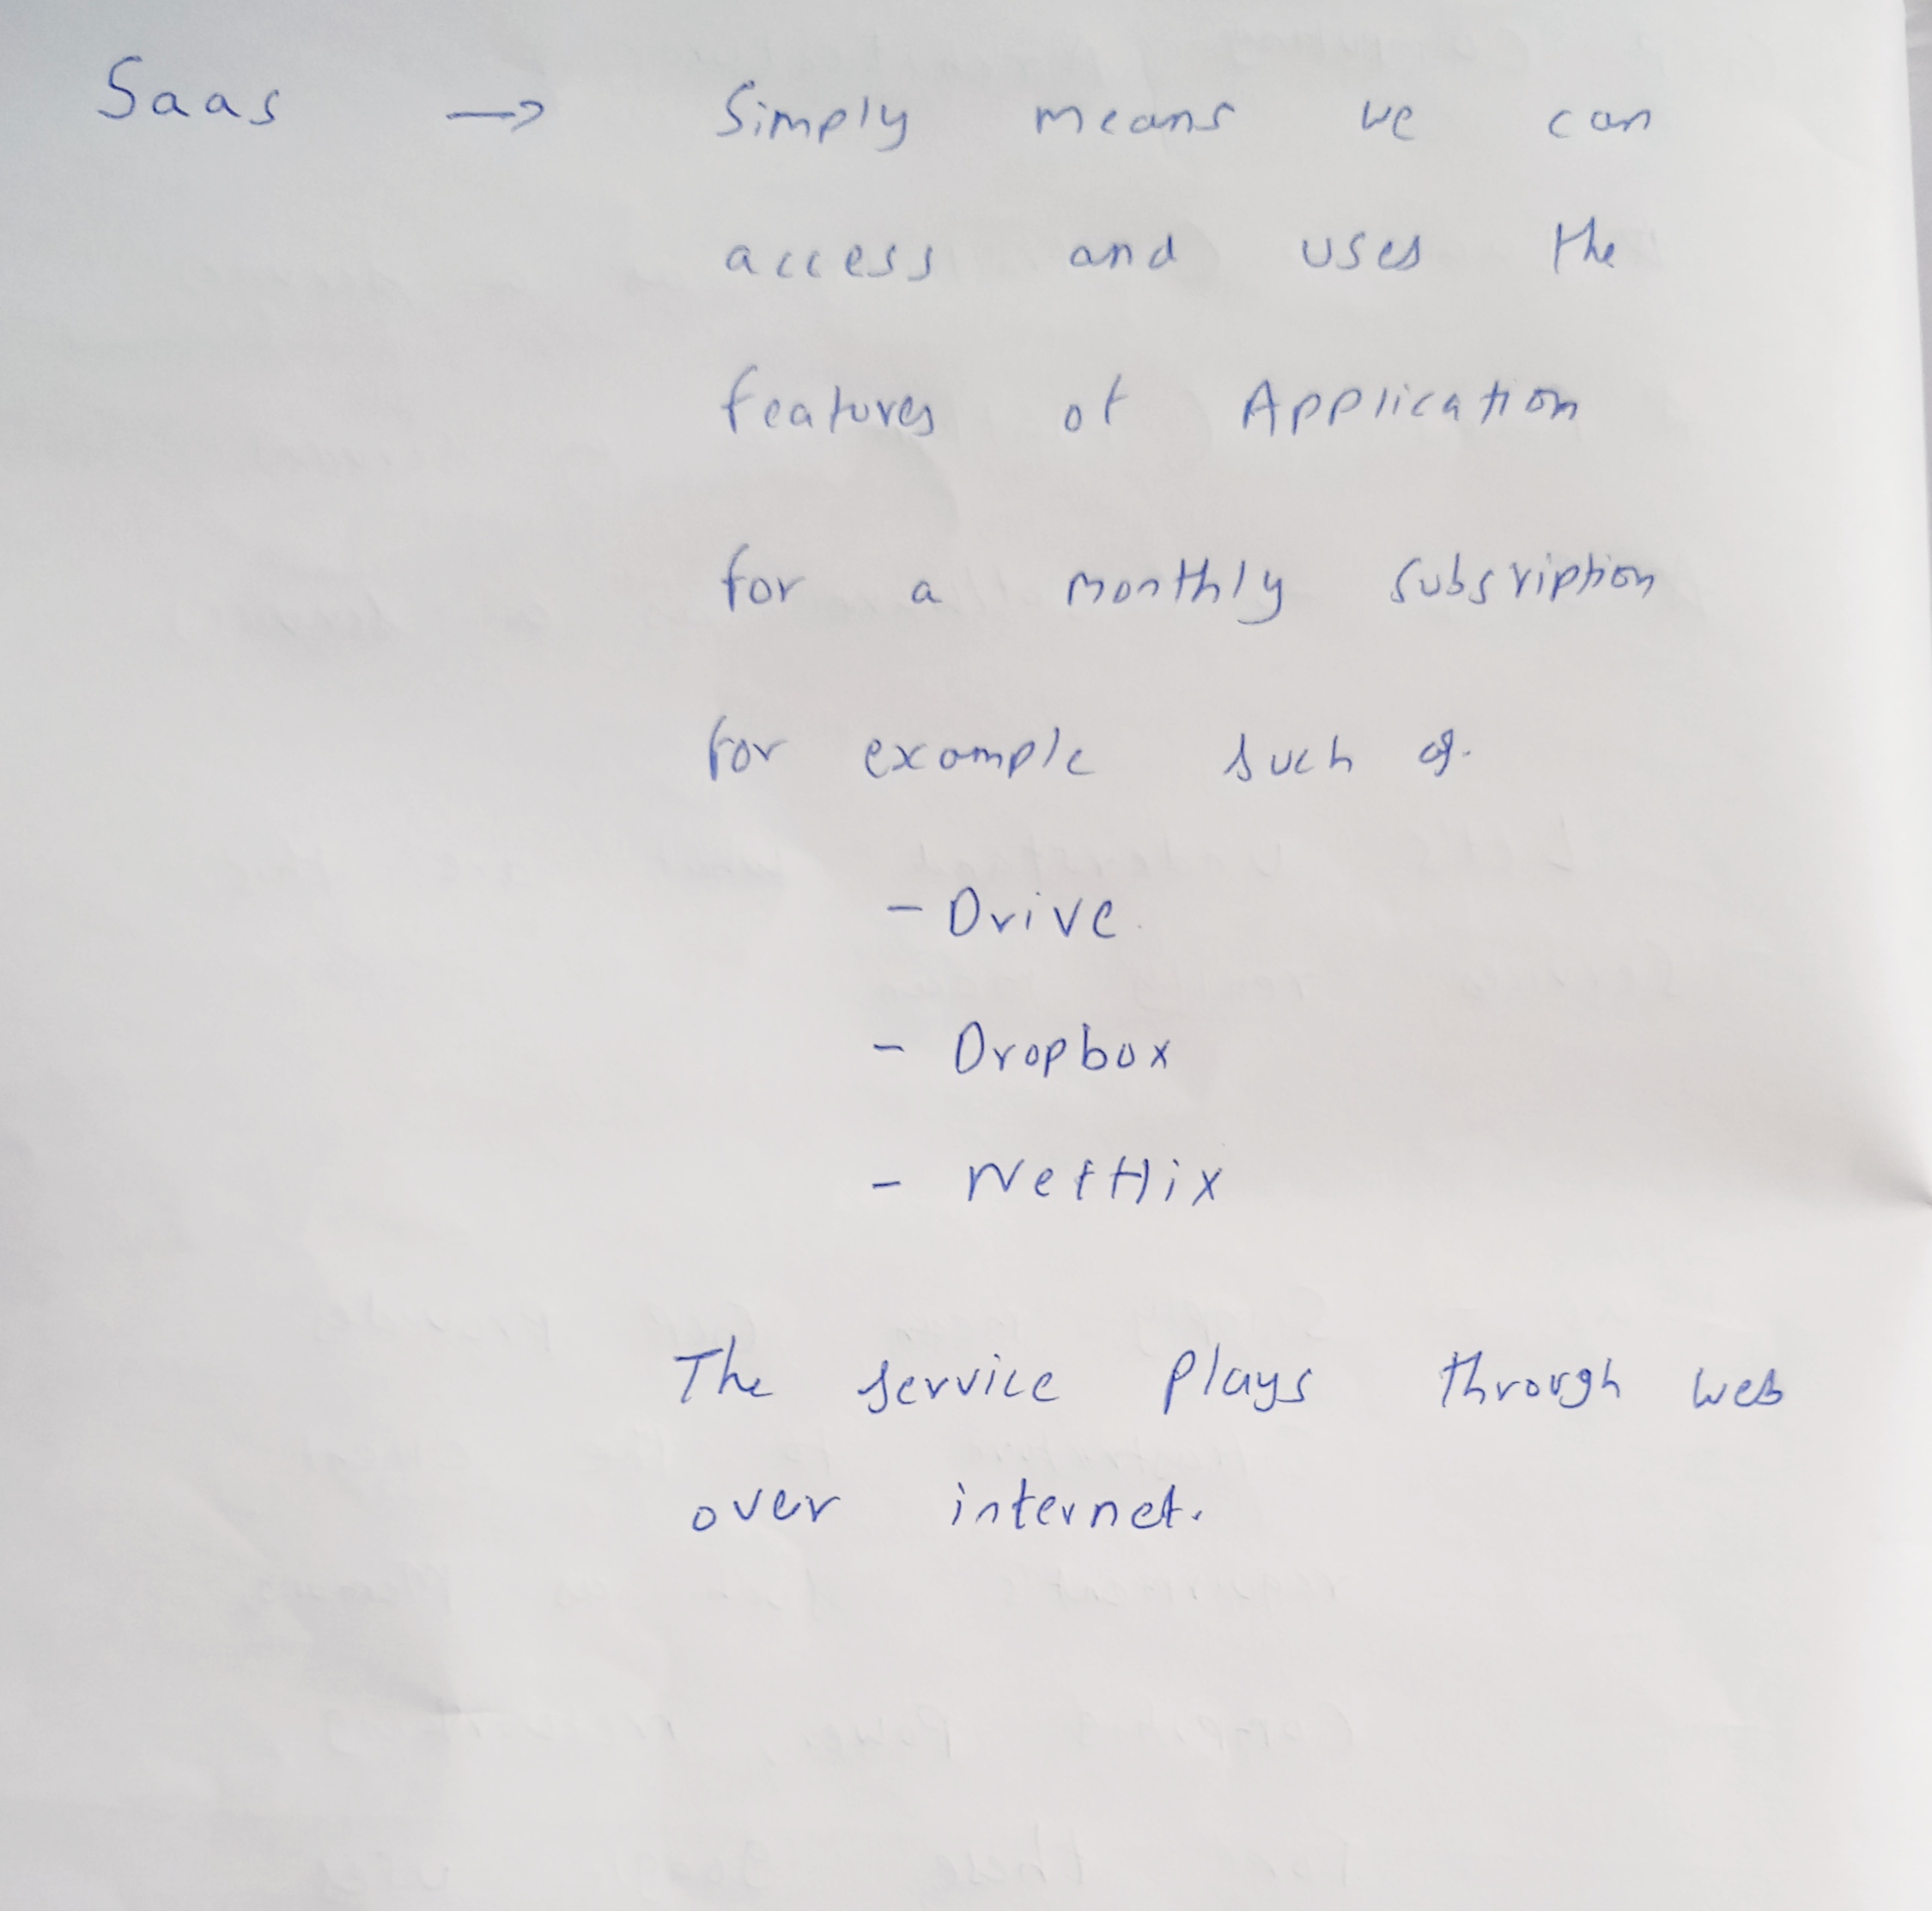 Saas → Simply means we can
access and uses the
features of Application
for a monthly subsription
for example such as.
- Drive.
- Dropbox
- Netflix
The service plays through web
over internet.